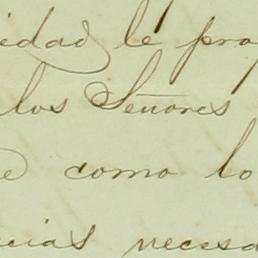 iedad le prop
los Señores
e como lo
cias necesa